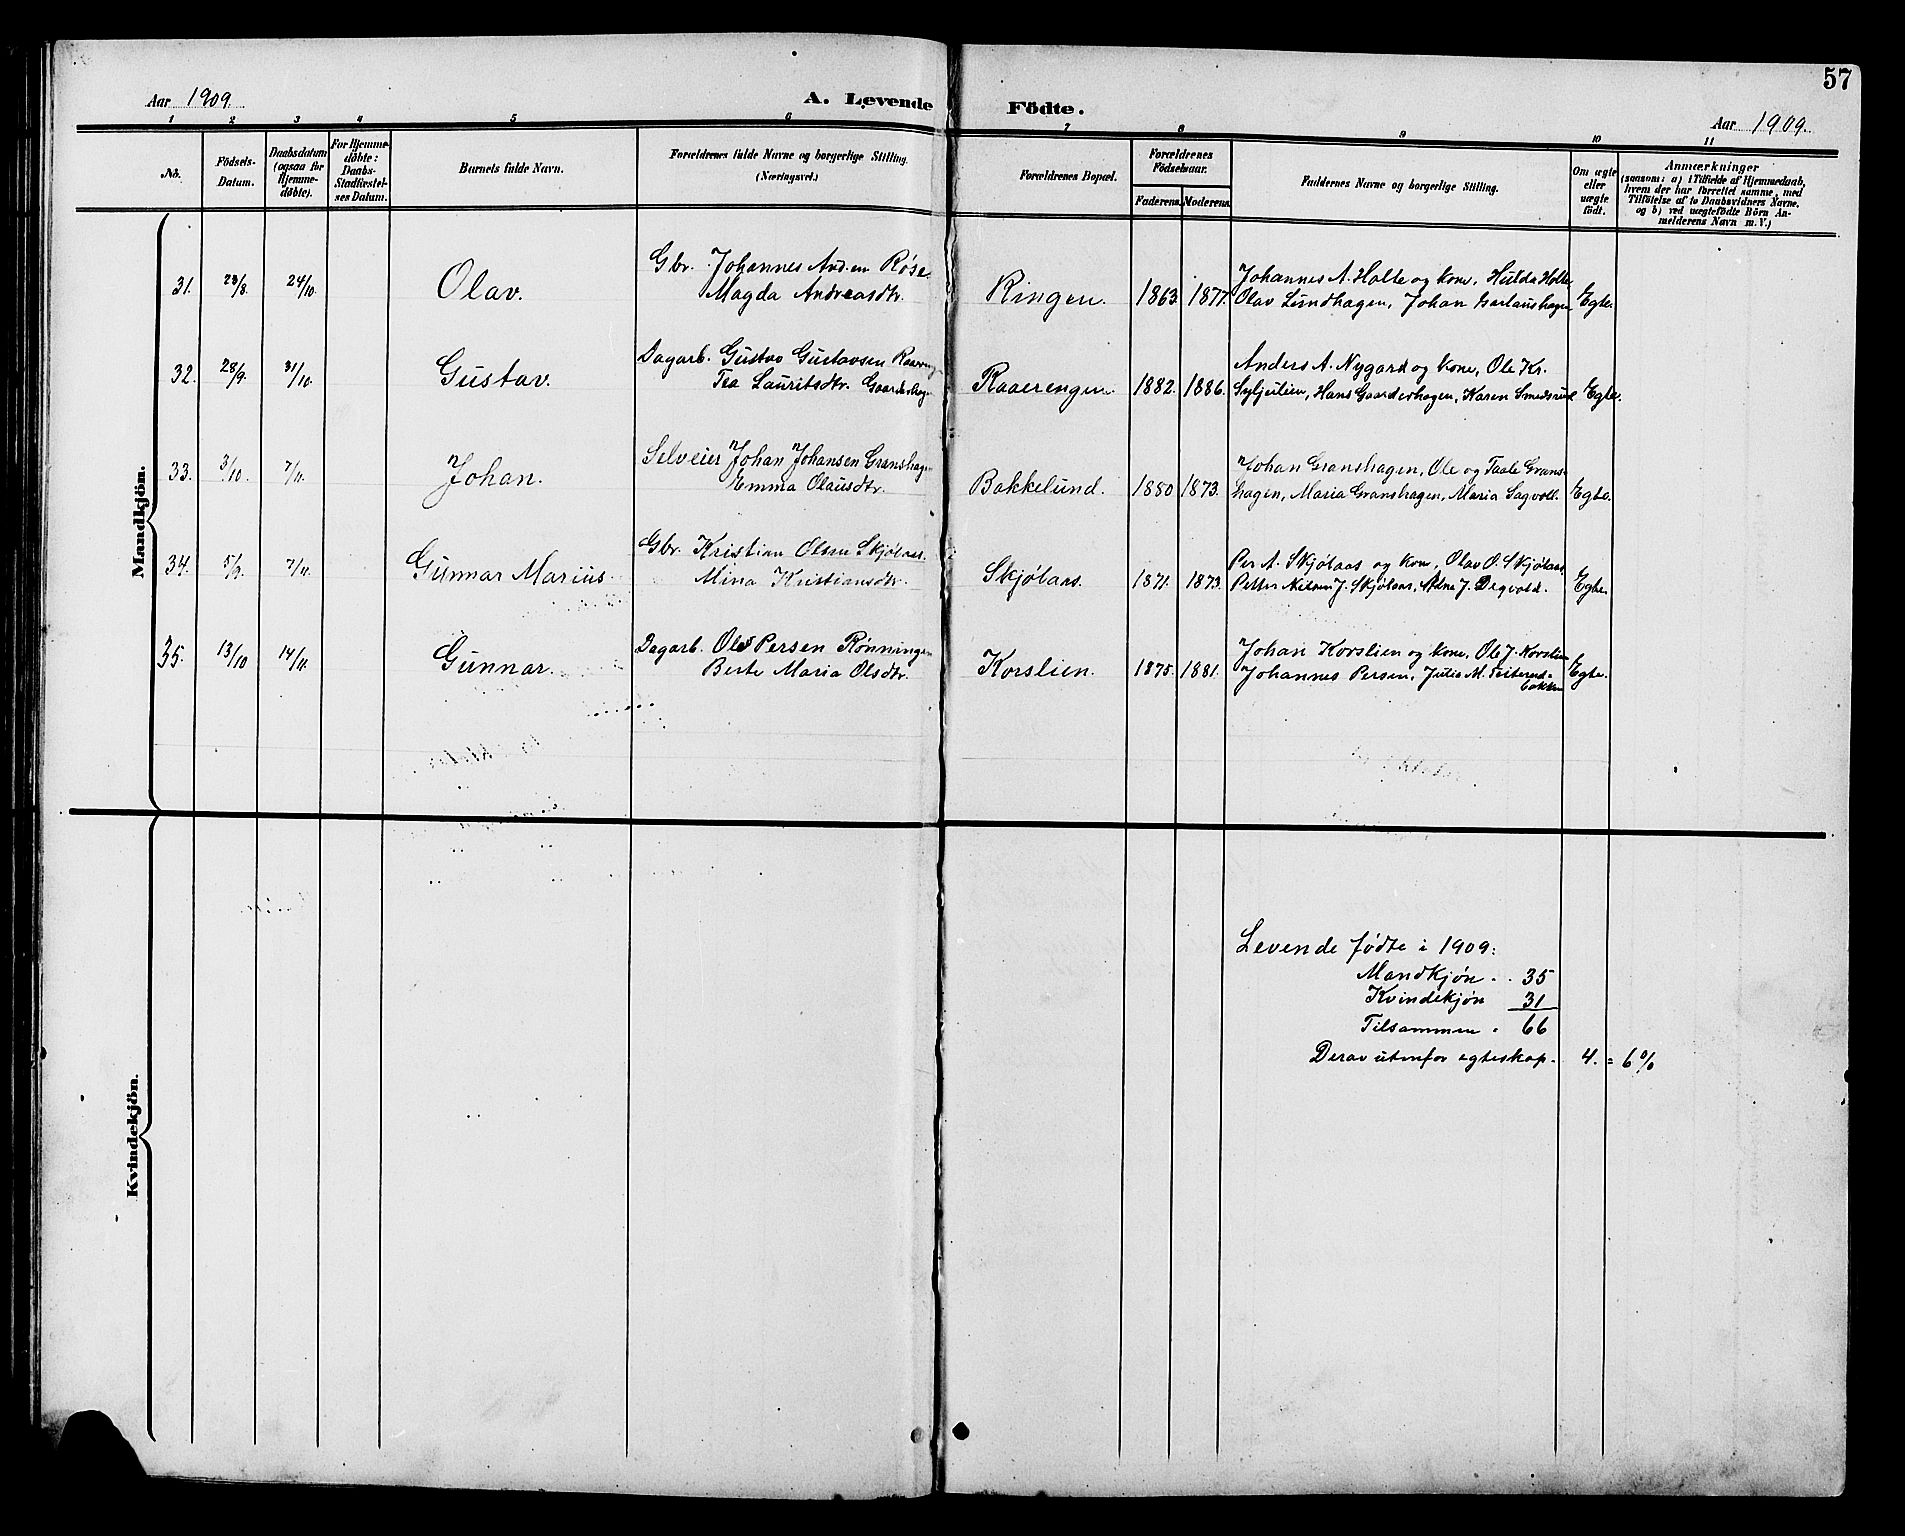 57
Aar 1909.
A. Levende Födte.
Aar 1909.
1 2 3 4 5 6 7 8 9 10 11
No.
Födsels-
Datum.
Daabsdatum
(ogsaa for
Hjemme-
döbte).
For Hjemme-
döbte:
Daabs-
Stadfæstel-
ses Datum.
Barnets fulde Navn.
Forældrenes fulde Navne og borgerlige Stilling.
(Næringsvei.)
Forældrenes Bopæl.
Forældrenes
Födselsaar.
Faderens. Moderens.
Faddernes Navne og borgerlige Stilling.
Om ægte
eller
uægte
födt.
Anmærkninger
(saasom: a) i Tilfælde af Hjemmedaab,
hvem der har forrettet samme, med
Tilföielse af to Daabsvidners Navne.
og b) ved uægtefödte Börn An-
melderens Navn m. V.)
Mandkjön.
31. 28/8. 24/10. Olav. Gbr. Johannes And.en Røse
Magda Andreasdtr. Ringen. 1863 1877. Johannes A. Holte og kone, Hulda Holte
Olav Lundhagen, Johan Egte.
32. 28/9. 31/10. Gustav. Dagarb. Gustav Gustavsen
Tea Lauritsdtr. Raaerengen. 1882. 1886. Anders A. Nygard og kone, Ole Kr.
Syljulien, Hans Gaarderhagen, Karen Smedsrud Egte.
33. 3/10. 7/11. Johan. Selveier Johan Johansen Granshagen
Emma Olausdtr. Bakkelund. 1880 1873. Johan Granshagen, Ole og Grans-
hagen, Maria Granshagen, Maria Sagvoll. Egte.
34. 5/9. 7/11. Gunnar Marius. Gbr. Kristian Olsen Skjølaas.
Mina Kristiansdtr. Skjølaas. 1871. 1873. Per A. Skjølaas og kone, Olav O. Skjølaas,
Petter J. Skjølaas, J. Degvold. Egte.
35. 13/10 14/11. Gunnar. Dagarb. Ole Persen Rønningen
Berte Maria Olsdtr. Korslien. 1875. 1881. Johan Korslien og kone, Ole J. Korslien
Johannes Persen, Julie M. Egte.
Kvindekjön.
Levende fødte i 1909:
Mandkjøn . . 35
Kvindekjøn 31
Tilsammen . 66
Derav utenfor egteskap. 4. = 6%